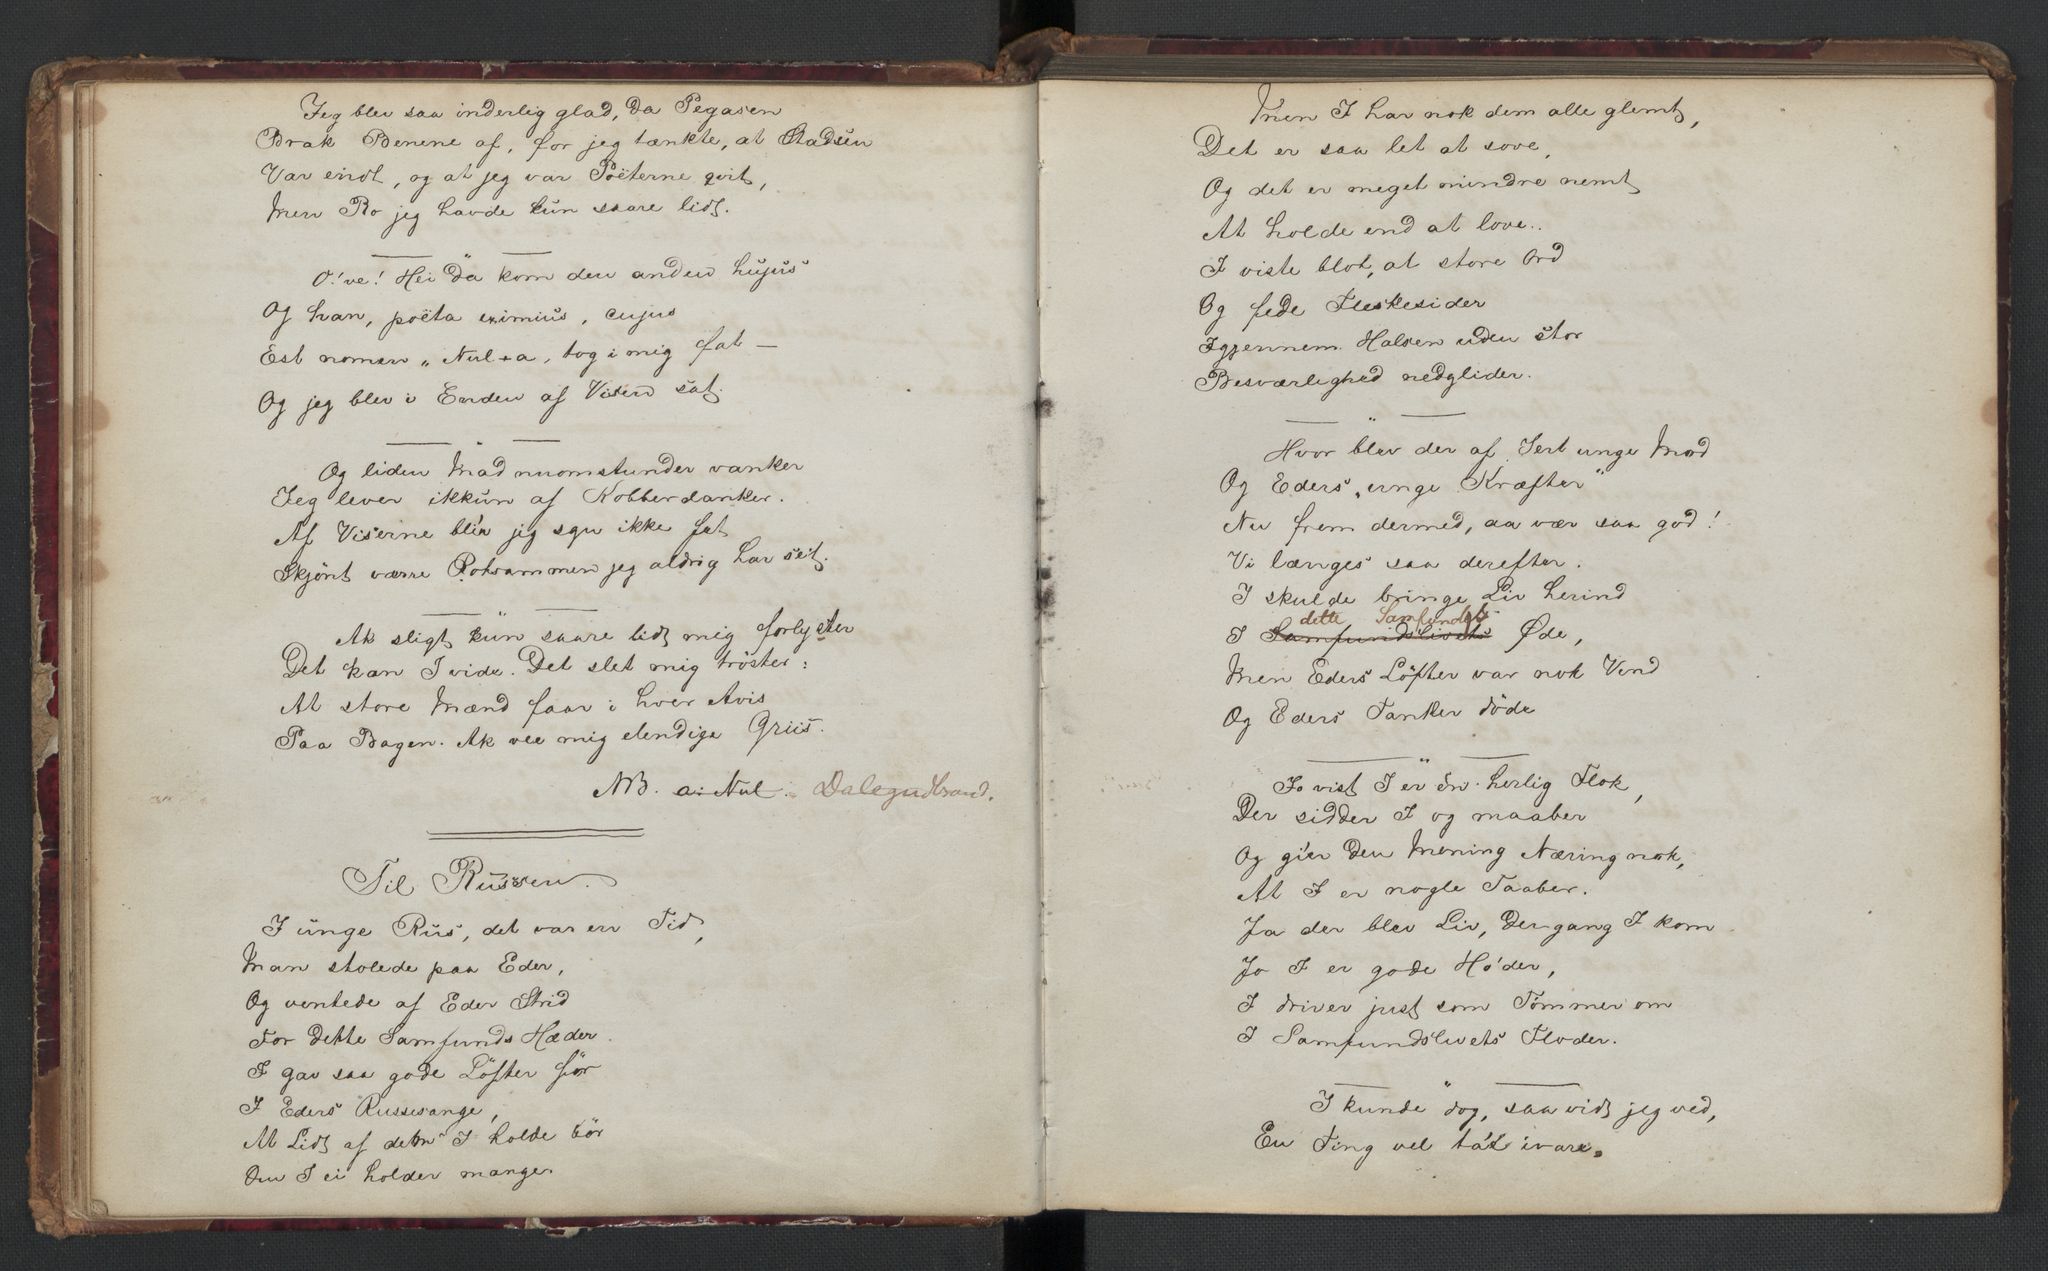 Jeg blev saa inderlig glad, da Pegasen
Brak Benene af, for jeg tænkte, at Stadsen
Var endt, og at jeg var Poëterne qvit,
Men Ro jeg havde kun saare lidt.
O! ve! Hei da kom den anden hujus
Og han, poëta eximius, cujus
Est nomen „Nul + a, tog i mig fat —
Og jeg blev i Enden af Visen sat.
Og liden Mad nuomstunder vanker
Jeg lever ikkun af Kobberdanker.
Af Viserne bli'r jeg sgu ikke fet
Skjønt værre Rotsammen jeg aldrig har set.
Ak sligt kun saare lidt mig forlyster
Det kan I vide. Det slet mig trøster:
At store Mænd faar i hver Avis
Paa Bagen. Ak vee mig elendige Griis.
NB. a: Nul. – Dalegudbrand.
Til Russen.
I unge Rus, det var en Tid,
Man stolede paa Eder,
Og ventede af Eder Strid
For dette Samfunds Hæder.
I gav saa gode Løfter før
I Eders Russesange,
At Lidt af dem I holde bør
Om I ei holder mange.
Men I har nok dem alle glemt,
Det er saa let at sove,
Og det er meget mindre nemt
At holde end at love..
I viste blot, at store Ord
Og fede Fleskesider
Igjennem Halsen uden stor
Besværlighed nedglider.
Hvor blev der af Jert unge Mod
Og Eders „unge Kræfter"
Nu frem dermed, aa vær saa god!
Vi længes saa derefter.
I skulde bringe Liv herind
dette Samfundets
I Samfundslivets Øde,
Men Eders Løfter var nok Vind
Og Eders Tanker døde
Jo vist I er en herlig Flok,
Der sidder I og maaber
Og gi'er den Mening Næring nok,
At I er nogle Taaber.
Ja der blev Liv, dengang I kom
Jo I er gode Ho'der,
I driver just som Tømmer om
I Samfundslivets Floder.
I kunde dog, saavidt jeg ved,
En Ting vel ta't ivare.